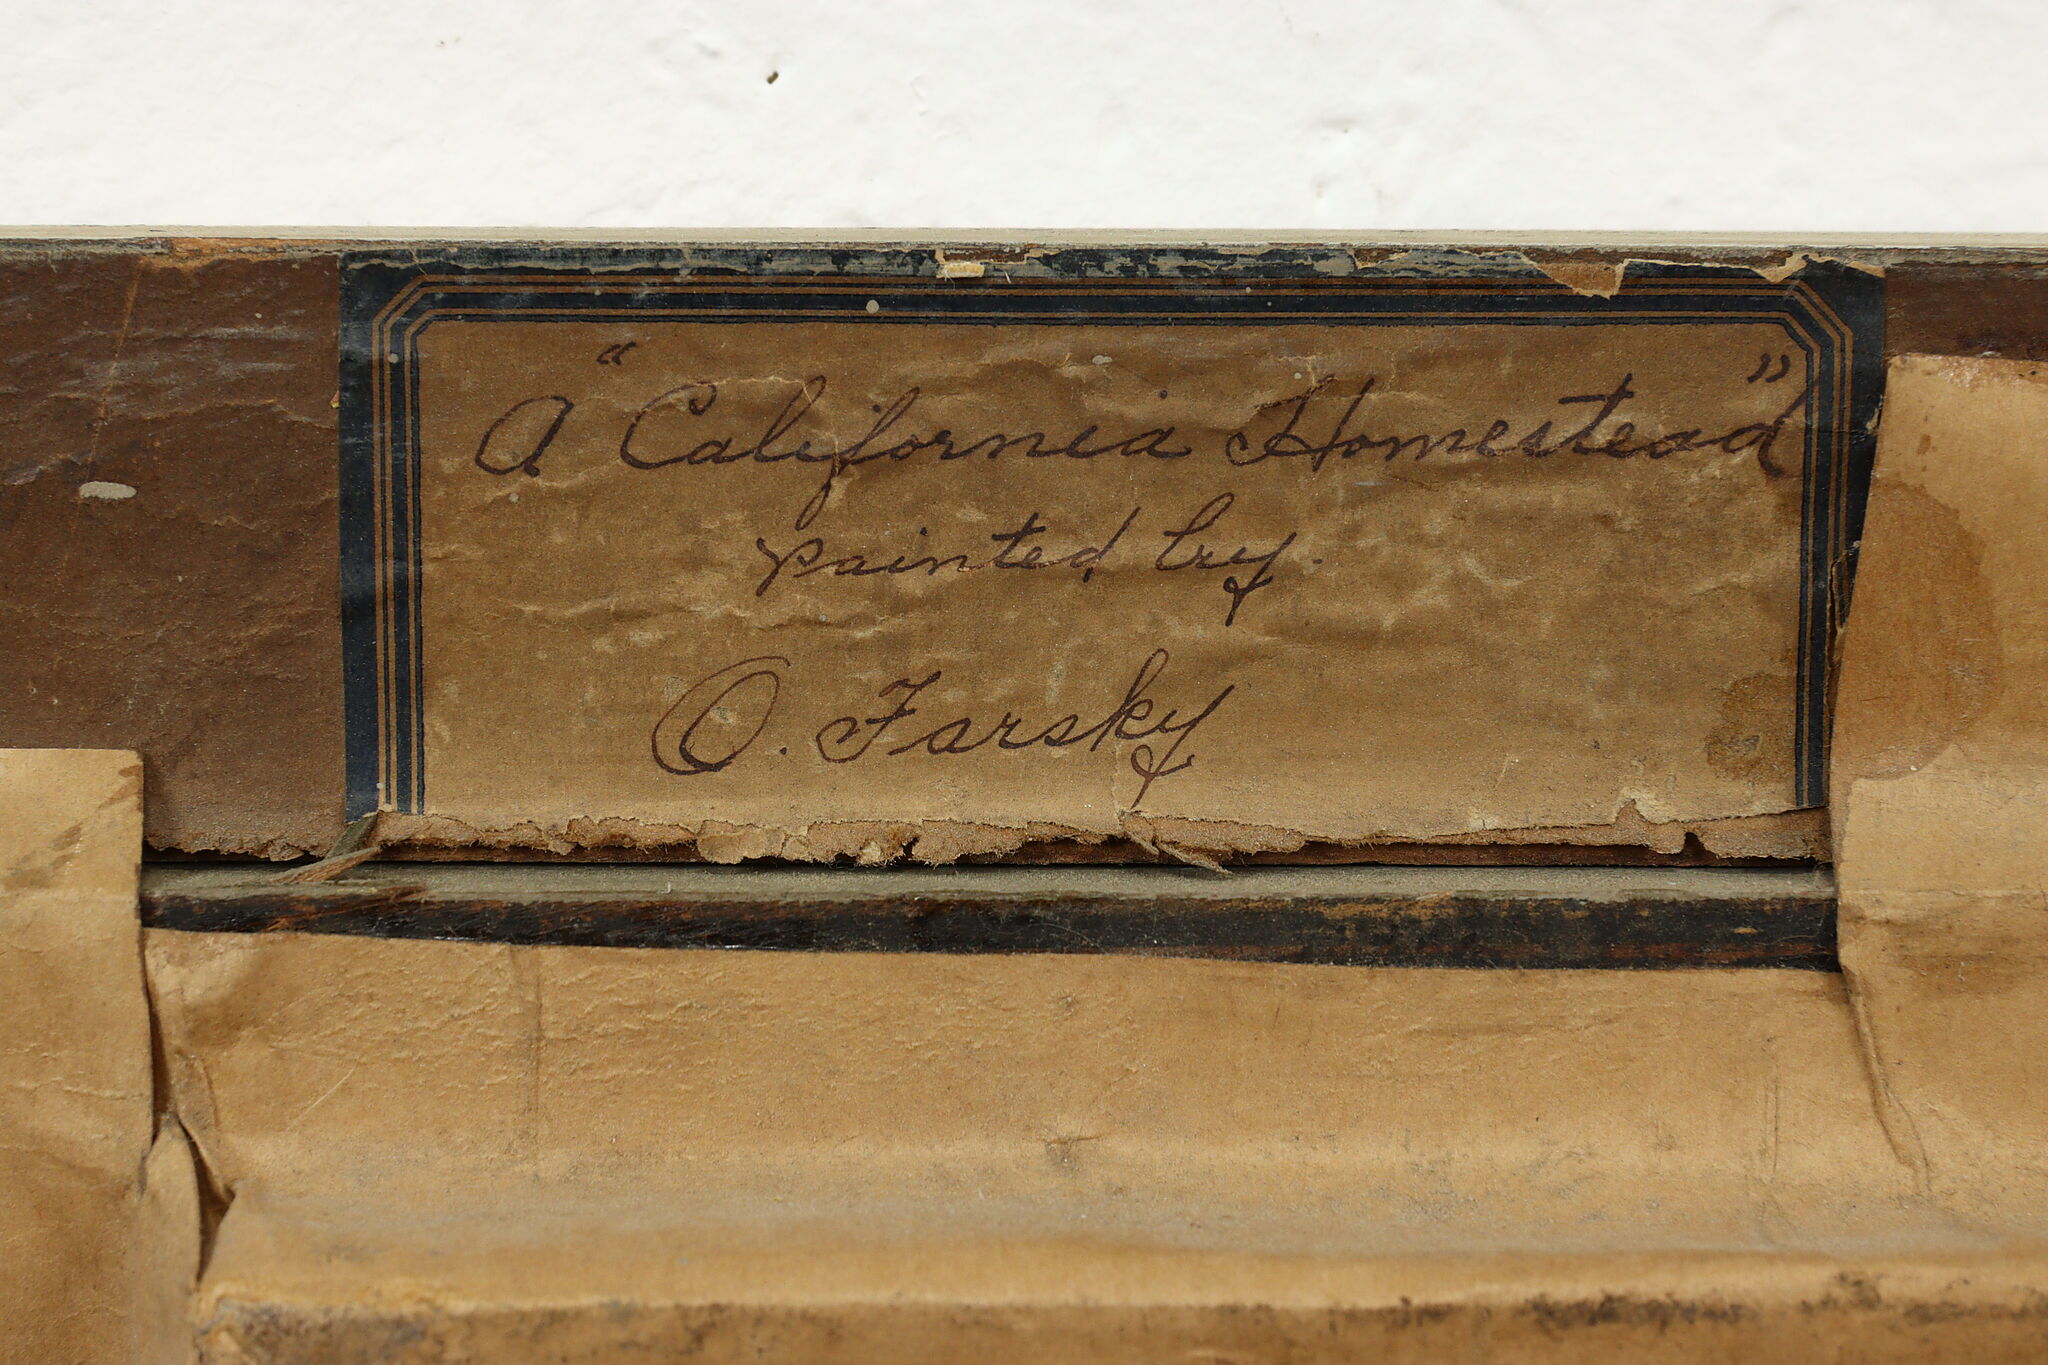 A "California Homestead"
painted by.
O. Farsky